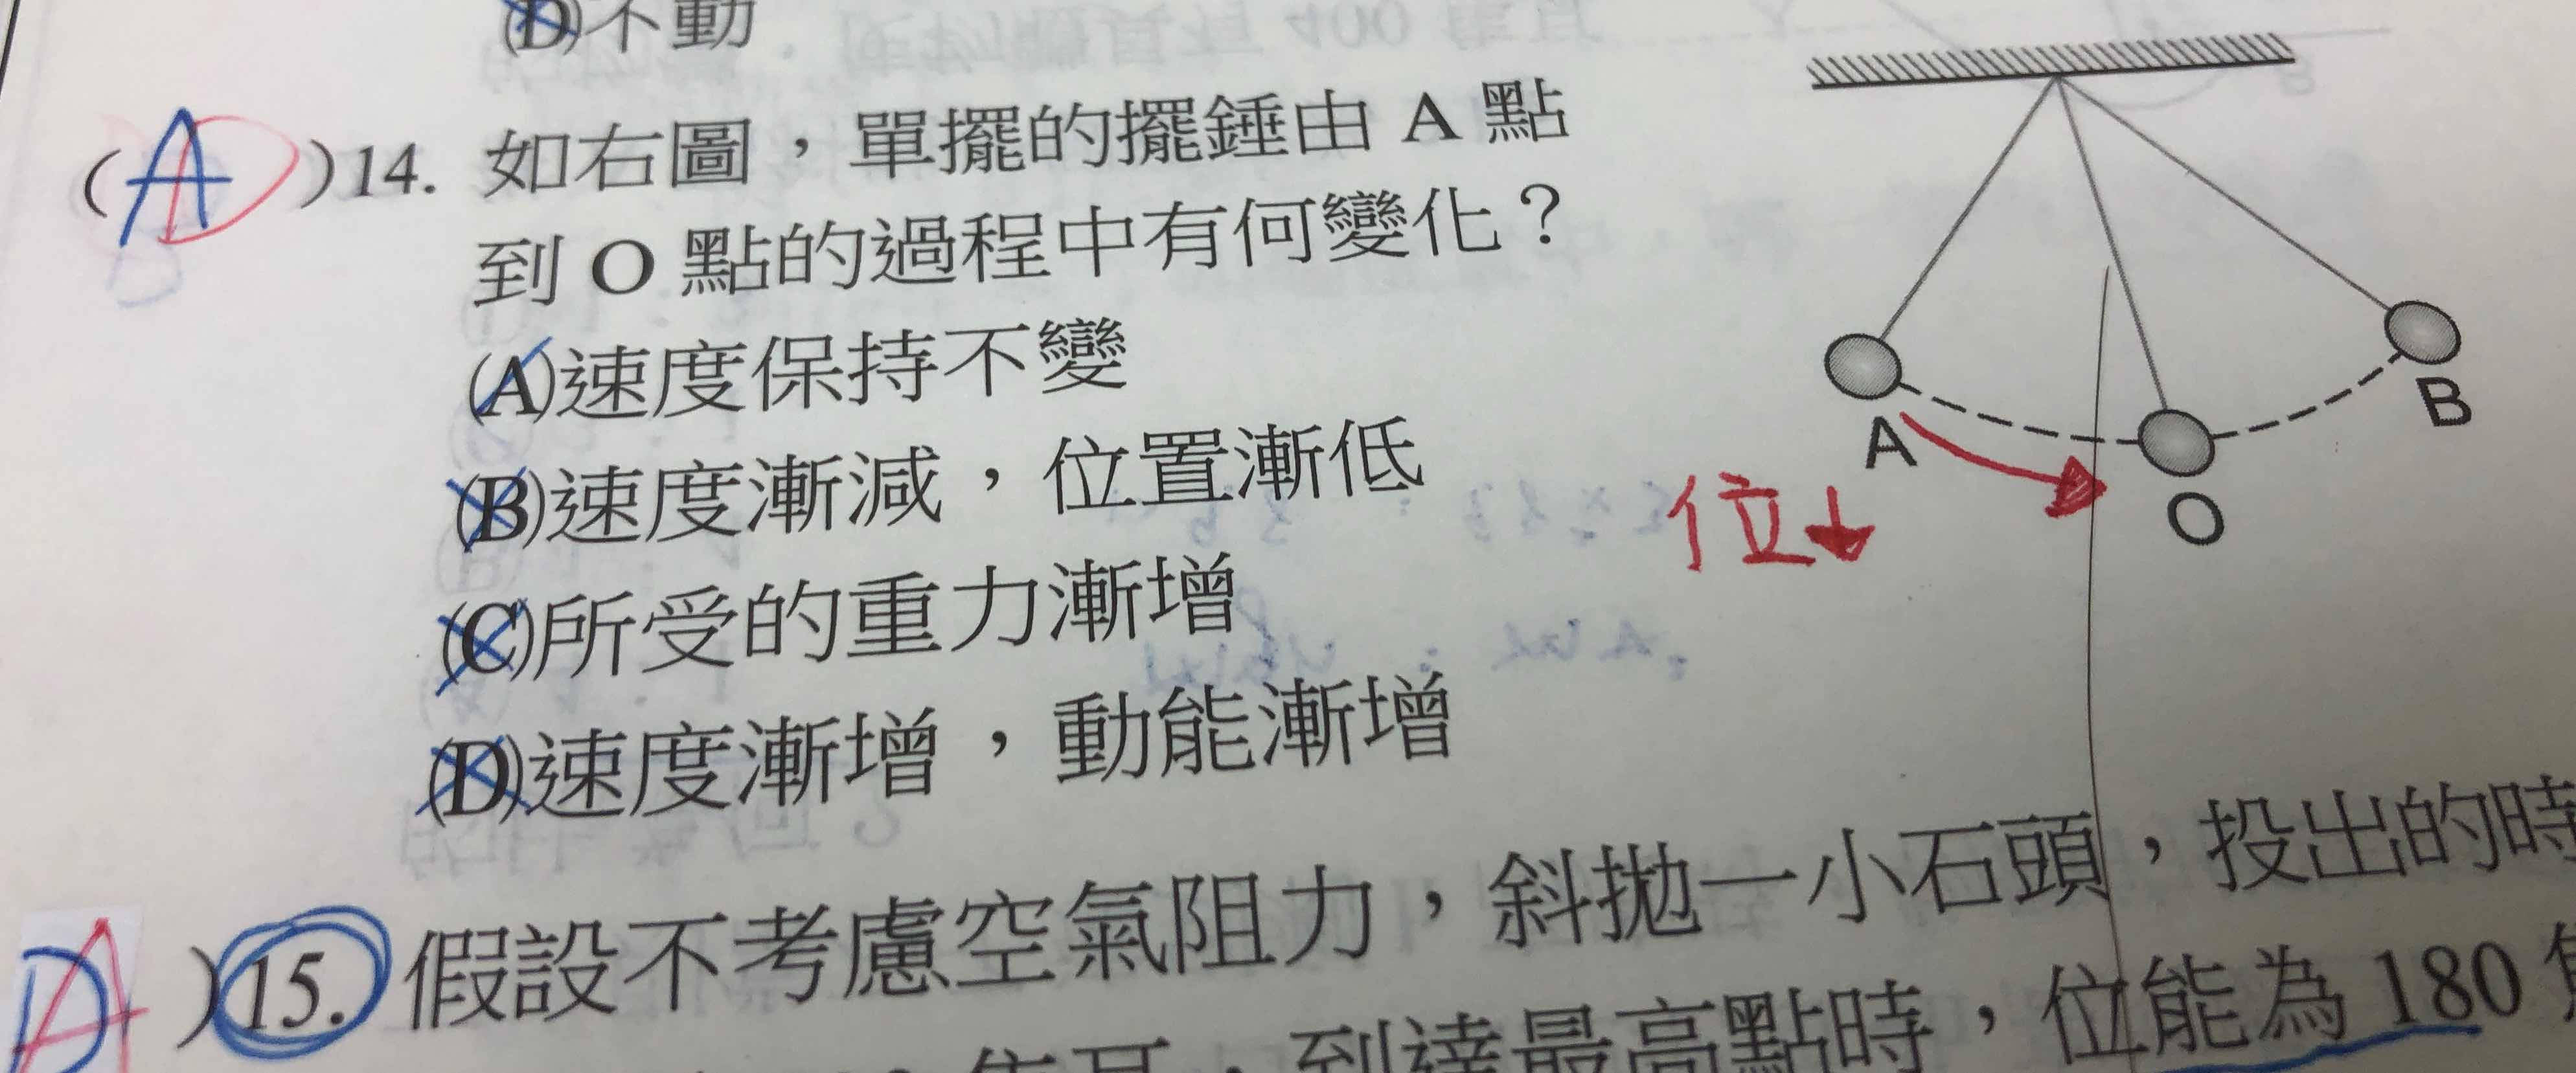 (D)不動
(A D)14. 如右圖，單擺的擺錘由 A 點
到 O 點的過程中有何變化？
(A)速度保持不變
(B)速度漸減，位置漸低
(C)所受的重力漸增
(D)速度漸增，動能漸增
A
O
B
位↓
D A )15. 假設不考慮空氣阻力，斜拋一小石頭，投出的時
到達最高點時，位能為 180